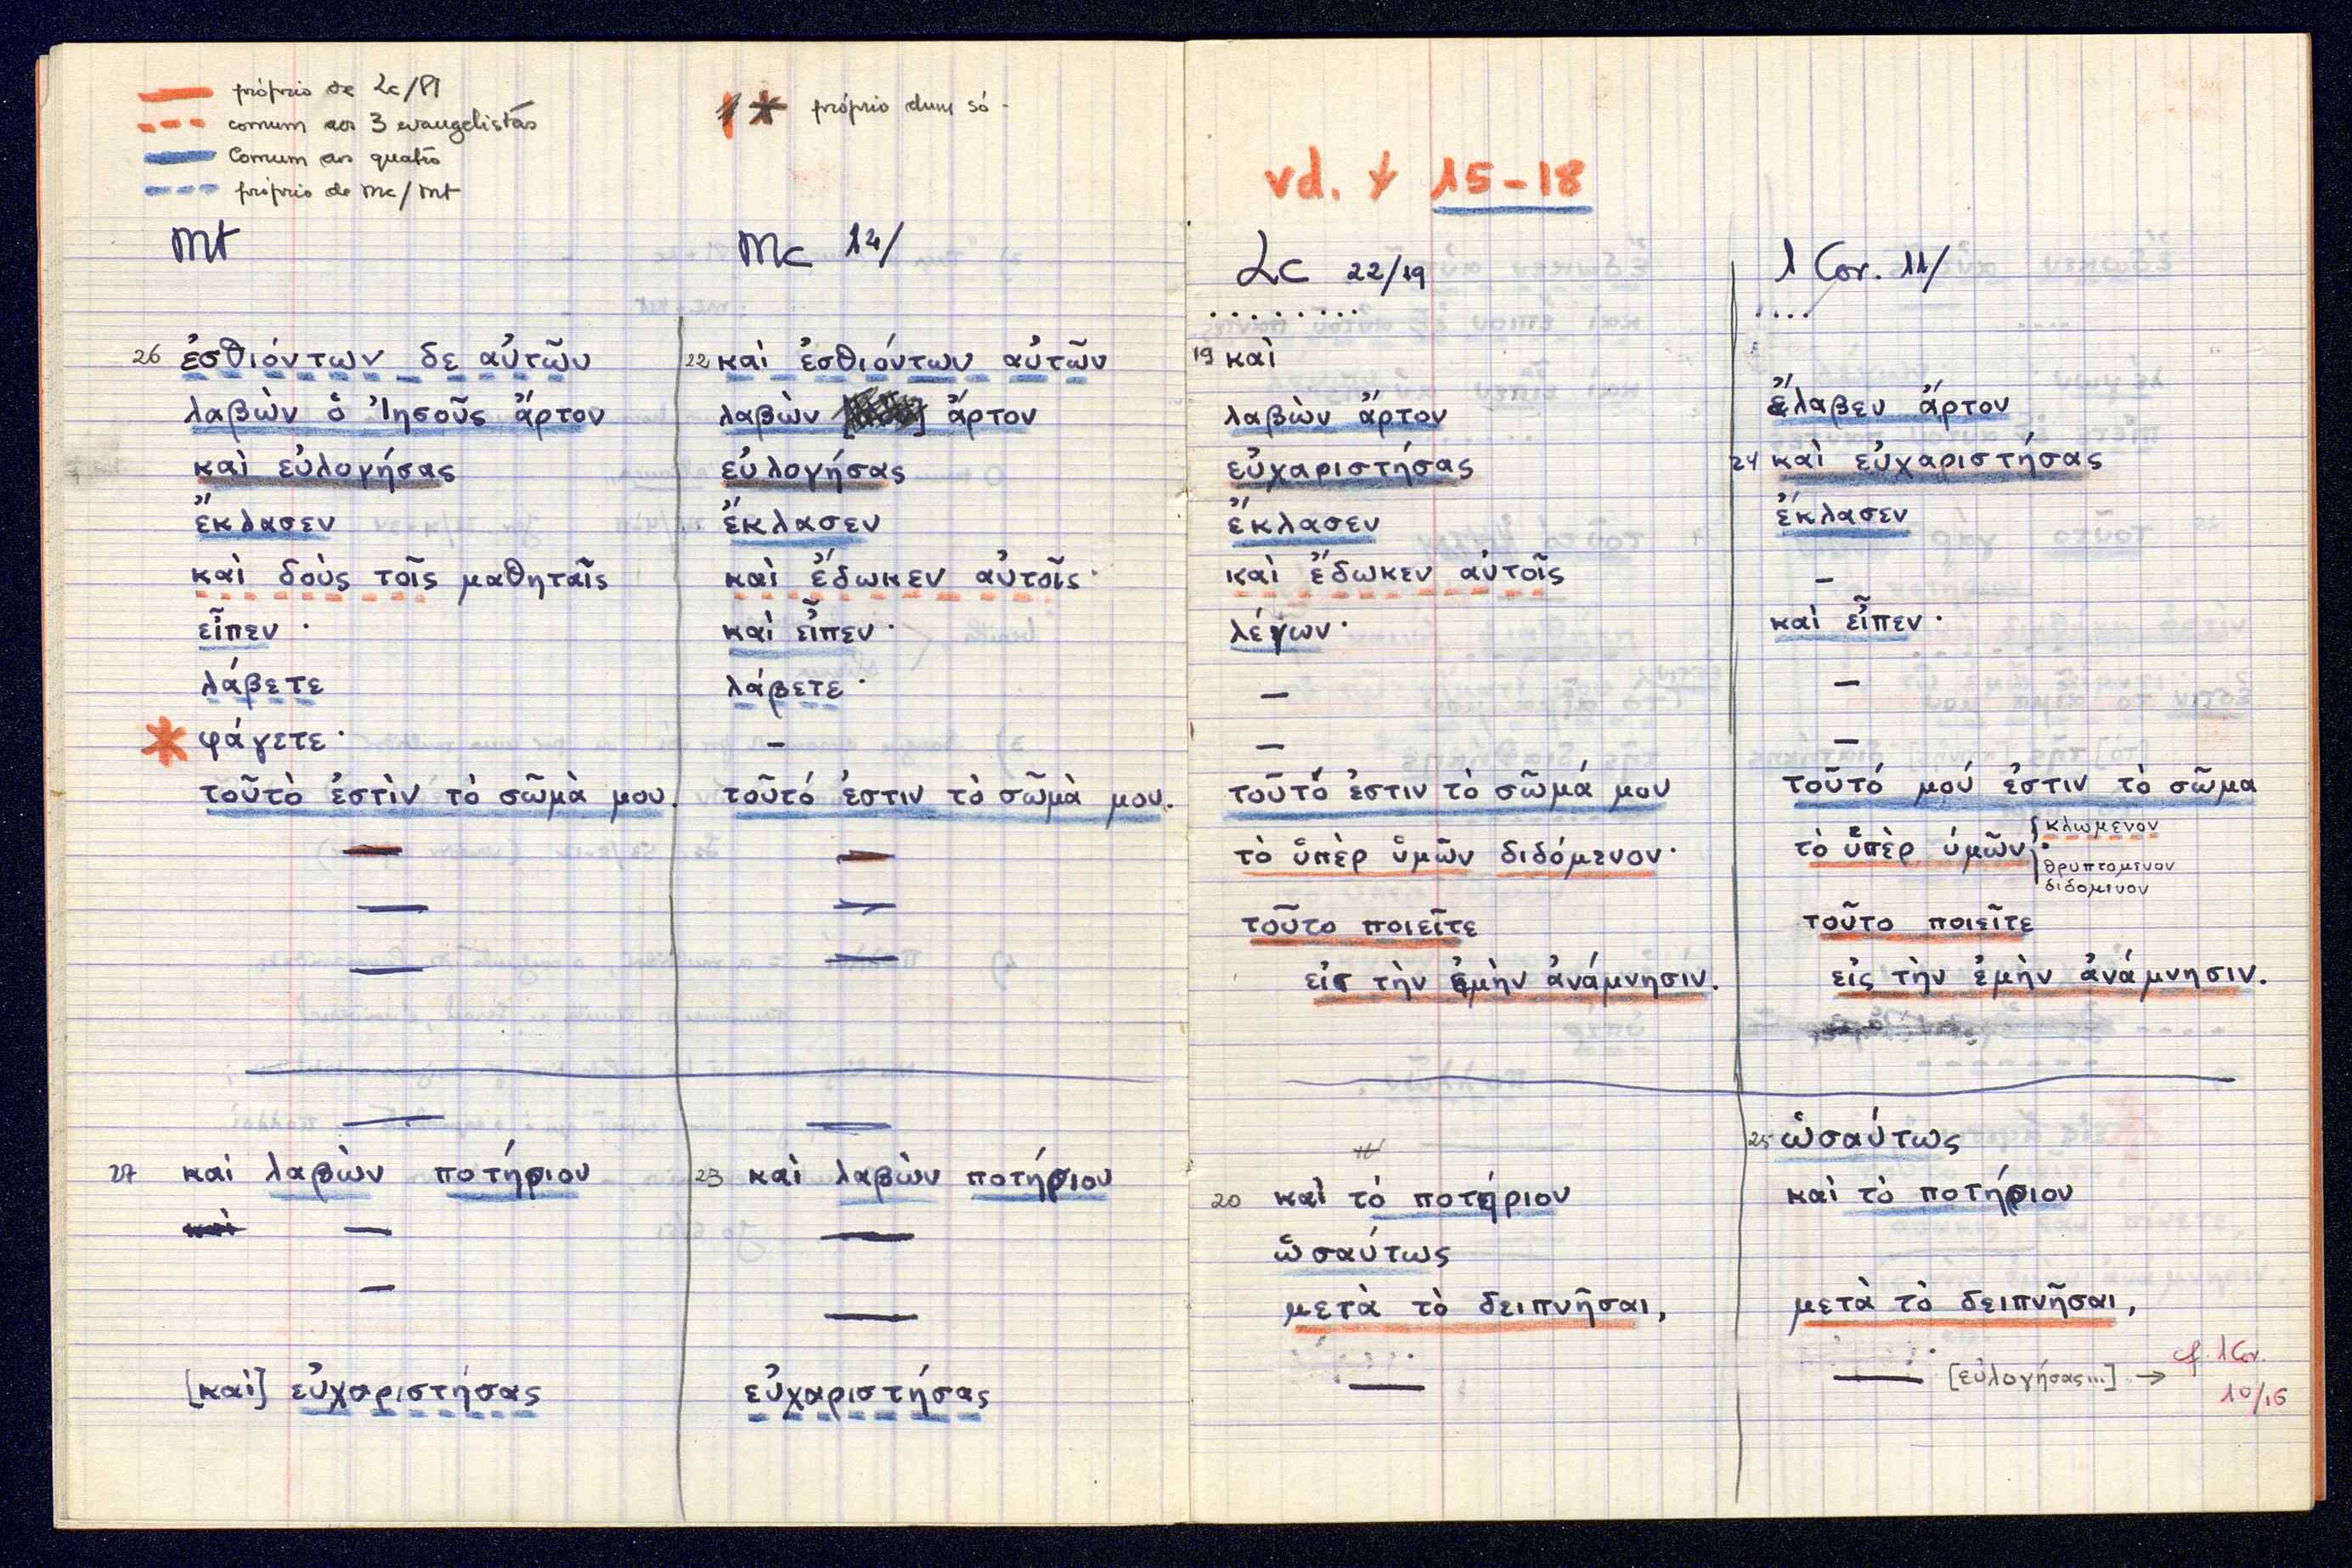 próprio de Lc/Pl
comum aos 3 evangelistas
Comum aos quatro
próprio de Mc/Mt
próprio dum só -
Mt
26 ἐσθιόντων δε αὐτῶν
λαβὼν ὁ Ἰησοῦς ἄρτον
καὶ εὐλογήσας
ἔκλασεν
καὶ δοὺς τοῖς μαθηταῖς
εἶπεν ·
λάβετε
* φάγετε ·
τοῦτὸ ἐστὶν τὸ σῶμὰ μου.
—
—
—
—
27 καὶ λαβὼν ποτήριον
καὶ —
—
[καὶ] εὐχαριστήσας
Mc 14/
22 καὶ ἐσθιόντων αὐτῶν
λαβὼν ἄρτον
εὐλογήσας
ἔκλασεν
καὶ ἔδωκεν αὐτοῖς ·
καὶ εἶπεν ·
λάβετε ·
–
τοῦτό ἐστιν τὸ σῶμὰ μου.
—
—
—
—
23 καὶ λαβὼν ποτήριον
—
—
εὐχαριστήσας
vd. 15-18
Lc 22/19
.........
19 καὶ
λαβὼν ἄρτον
εὐχαριστήσας
ἔκλασεν
καὶ ἔδωκεν αὐτοῖς
λέγων ·
—
—
τοῦτό ἐστιν τὸ σῶμά μου
τὸ ὑπὲρ ὑμῶν διδόμενον ·
τοῦτο ποιεῖτε
εἰσ τὴν ἐμὴν ἀνάμνησιν.
20 καὶ τὸ ποτήριον
ὡσαύτως
μετὰ τὸ δειπνῆσαι,
—
1 Cor. 11/
....
ἔλαβεν ἄρτον
24 καὶ εὐχαριστήσας
ἔκλασεν
–
καὶ εἶπεν ·
—
—
τοῦτό μού ἐστιν τὸ σῶμα
κλωμενον
τὸ ὑπὲρ ὑμῶν ·
θρυπτομενον
διδομενον
τοῦτο ποιεῖτε
εἰς τὴν ἐμὴν ἀνάμνησιν.
25 ὡσαύτως
καὶ τὸ ποτήριον
μετὰ τὸ δειπνῆσαι,
— [εὐλογήσας...] → cf. 1 Cor.
10/16